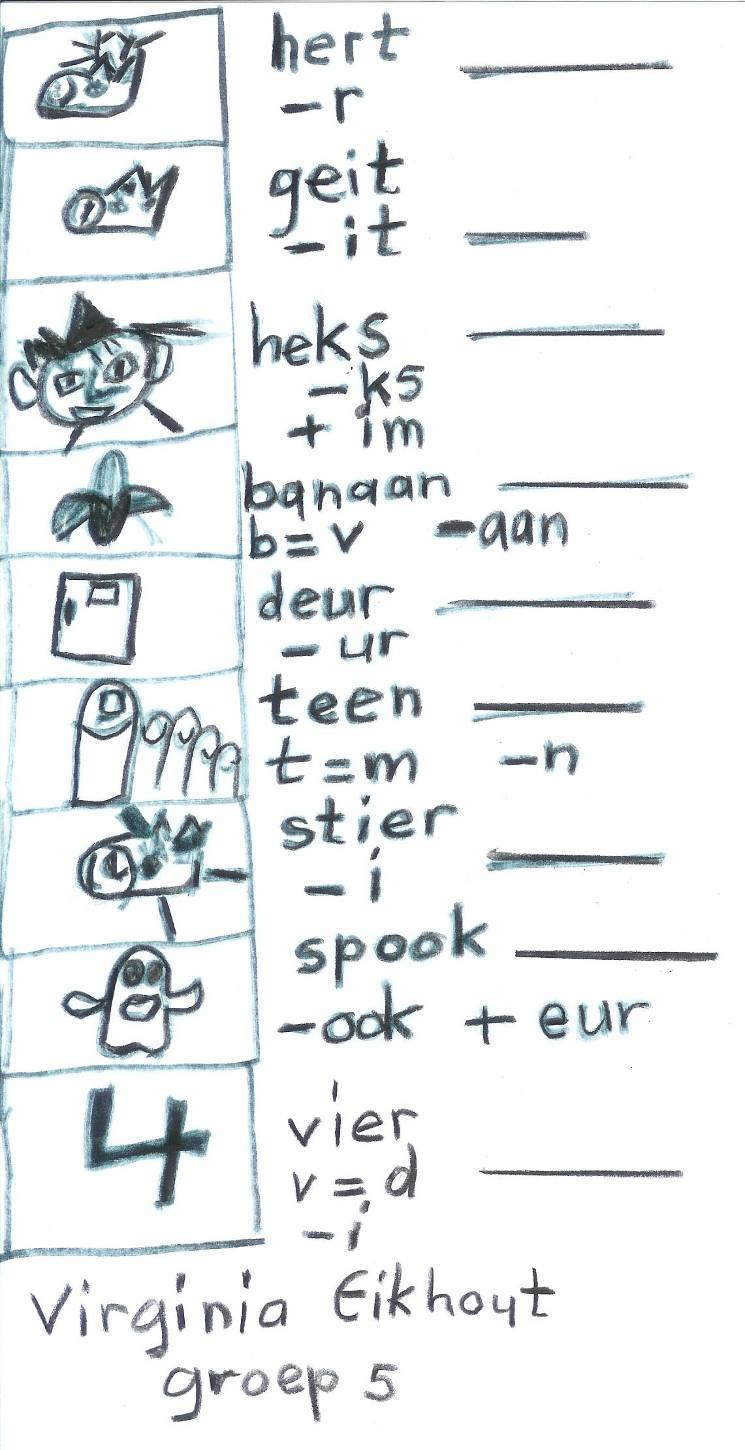 hert
-r
geit
-it
heks
-ks
+ im
banaan
b=v -aan
deur
-ur
teen
t=m -n
stier
-i
spook
-ook + eur
4
vier
v=d
-i
Virginia Eikhout
groep 5